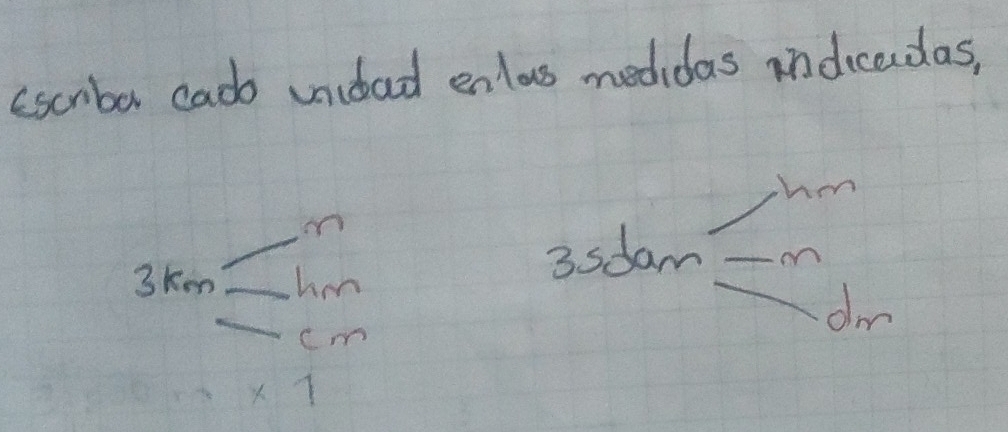 escriba cado unidad en las medidas indicadas,
m
3km hm
cm
x 1
hm
35dam m
dm